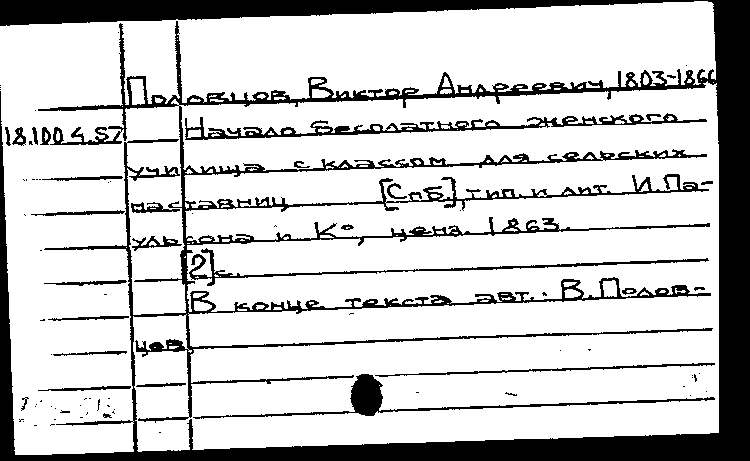 Половцов, Виктор Андреевич, 1803-1866
18.100.4.57 Начало бесплатного женского
училища с классом для сельских
наставниц. [СПб], тип. и лит. И. Па-
ульсона и К°, ценз. 1863.
[2] с.
В конце текста авт.: В. Полов-
цев.